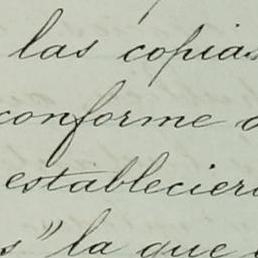 las copias
conforme
establecier
s" la que